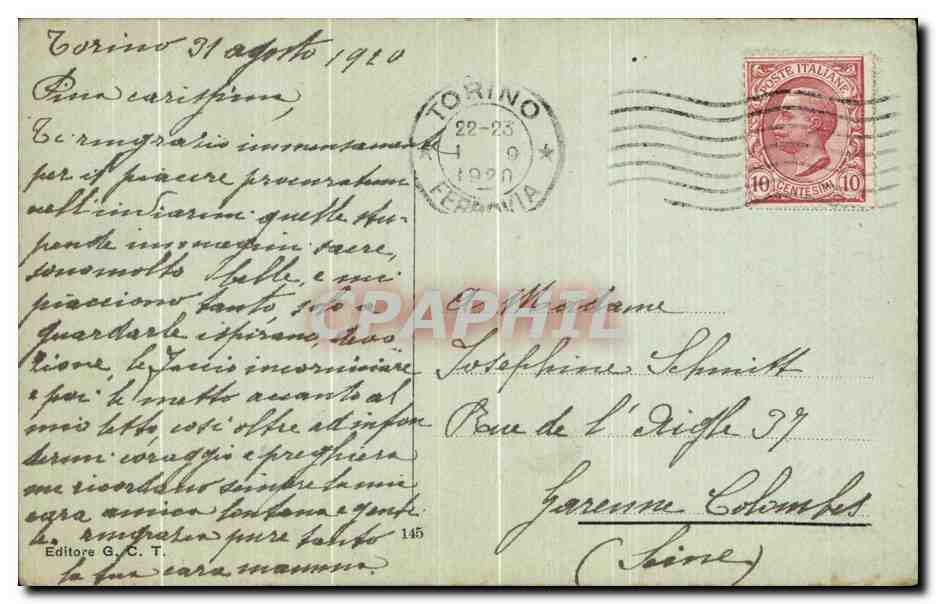 Torino 31 agosto 1920
Pina carissima,
Ti ringrazio immensamente
per il piacere procuratomi
nell'inviarmi quelle stu-
pende immagini sacre,
sono molto belle, e mi
piacciono tanto, solo a
guardarle ispirano, devo
zione, le faccio incorniciare
e poi le metto accanto al
mio letto così oltre ad infon
dermi coraggio e preghiera
mi ricordano sempre la mia
cara amica lontana e genti
le. ringrazia pure tanto
la tua cara mamma.
Editore G. C. T.
145
TORINO
22-23
1 9
1920
FERROVIA
POSTE ITALIANE
10 CENTESIMI 10
CPAPHIL
A Madame
Josephine Schmitt
Rue de l'Aigle 37
Garenne Colombes
(Seine)